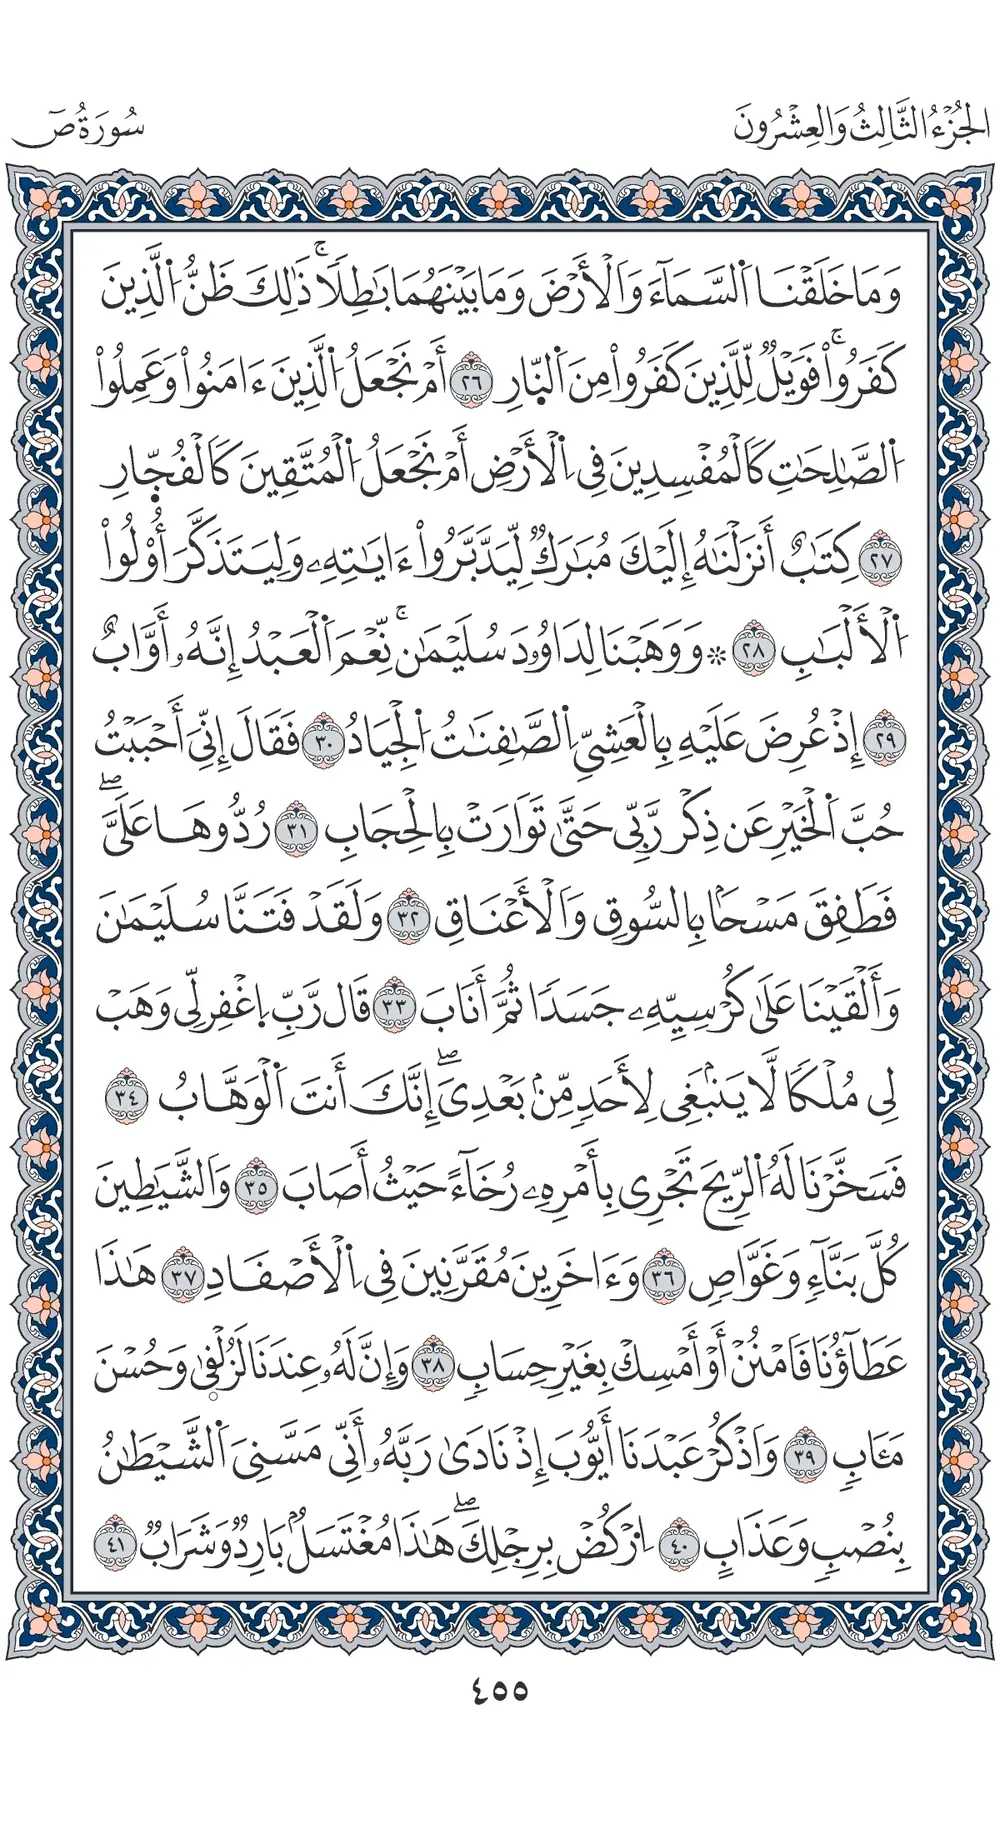 الجُزْءُ الثَّالِثُ وَالعِشْرُونَ
سُورَةُ صٓ
وَمَا خَلَقْنَا اَ۬لسَّمَآءَ وَالَارْضَ وَمَا بَيْنَهُمَا بَٰطِلاٗۚ ذَٰلِكَ ظَنُّ اُ۬لذِينَ
كَفَرُواْۚ فَوَيْلٞ لِّلذِينَ كَفَرُواْ مِنَ اَ۬لنّ۪ارِ ٢٦ أَمْ نَجْعَلُ اُ۬لذِينَ ءَامَنُواْ وَعَمِلُواْ
اُ۬لصَّٰلِحَٰتِ كَالْمُفْسِدِينَ فِي اِ۬لْأَرْضِ أَمْ نَجْعَلُ اُ۬لْمُتَّقِينَ كَالْفُجّ۪ارِ
٢٧ كِتَٰبٌ أَنزَلْنَٰهُ إِلَيْكَ مُبَٰرَكٞ لِّيَدَّبَّرُواْ ءَايَٰتِهِۦ وَلِيَتَذَكَّرَ أُوْلُواْ
اُ۬لْأَلْبَٰبِ ٢٨ ۞ وَوَهَبْنَا لِدَاوُۥدَ سُلَيْمَٰنَۚ نِّعْمَ اَ۬لْعَبْدُ إِنَّهُۥ أَوَّابٌ
٢٩ إِذْ عُرِضَ عَلَيْهِ بِالْعَشِيِّ اِ۬لصَّٰفِنَٰتُ اُ۬لْجِيَادُ ٣٠ فَقَالَ إِنِّيَ أَحْبَبْتُ
حُبَّ اَ۬لْخَيْرِ عَن ذِكْر رَّبِّي حَتَّىٰ تَوَارَتْ بِالْحِجَابِ ٣١ رُدُّوهَا عَلَيَّۖ
فَطَفِقَ مَسْحَۢا بِالسُّوقِ وَالْأَعْنَاقِ ٣٢ وَلَقَدْ فَتَنَّا سُلَيْمَٰنَ
وَأَلْقَيْنَا عَلَىٰ كُرْسِيِّهِۦ جَسَدٗا ثُمَّ أَنَابَ ٣٣ قَال رَّبِّ اِ۪غْفِر لِّي وَهَبْ
لِي مُلْكٗا لَّا يَنۢبَغِي لِأَحَدٖ مِّنۢ بَعْدِيَۖ إِنَّكَ أَنتَ اَ۬لْوَهَّابُ ٣٤
فَسَخَّرْنَا لَهُ اُ۬لرِّيحَ تَجْرِي بِأَمْرِهِۦ رُخَآءً حَيْثُ أَصَابَ ٣٥ وَالشَّيَٰطِينَ
كُلَّ بَنَّآءٖ وَغَوَّاصٖ ٣٦ وَءَاخَرِينَ مُقَرَّنِينَ فِي اِ۬لْأَصْفَادِ ٣٧ هَٰذَا
عَطَآؤُنَا فَامْنُنْ أَوْ أَمْسِكْ بِغَيْرِ حِسَابٖ ٣٨ وَإِنَّ لَهُۥ عِندَنَا لَزُلْف۪ىٰ وَحُسْنَ
مَـَٔابٖ ٣٩ وَاذْكُرْ عَبْدَنَا أَيُّوبَ إِذْ نَادَىٰ رَبَّهُۥ أَنِّي مَسَّنِيَ اَ۬لشَّيْطَٰنُ
بِنُصْبٖ وَعَذَابٍ ٤٠ اِ۟رْكُضْ بِرِجْلِكَۖ هَٰذَا مُغْتَسَلُۢ بَارِدٞ وَشَرَابٞ ٤١
٤٥٥